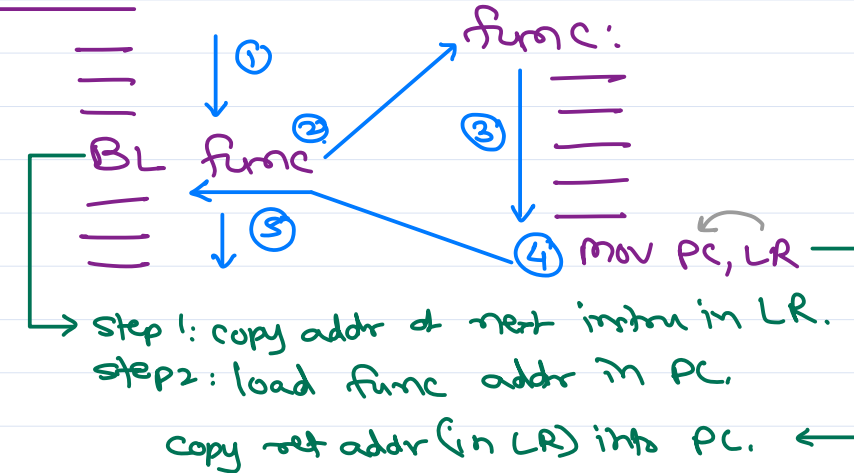 func:
①
②
BL func
③
⑤
④ MOV PC, LR
step 1: copy addr of next instru in LR.
step2: load func addr in PC.
copy ret addr (in LR) into PC.